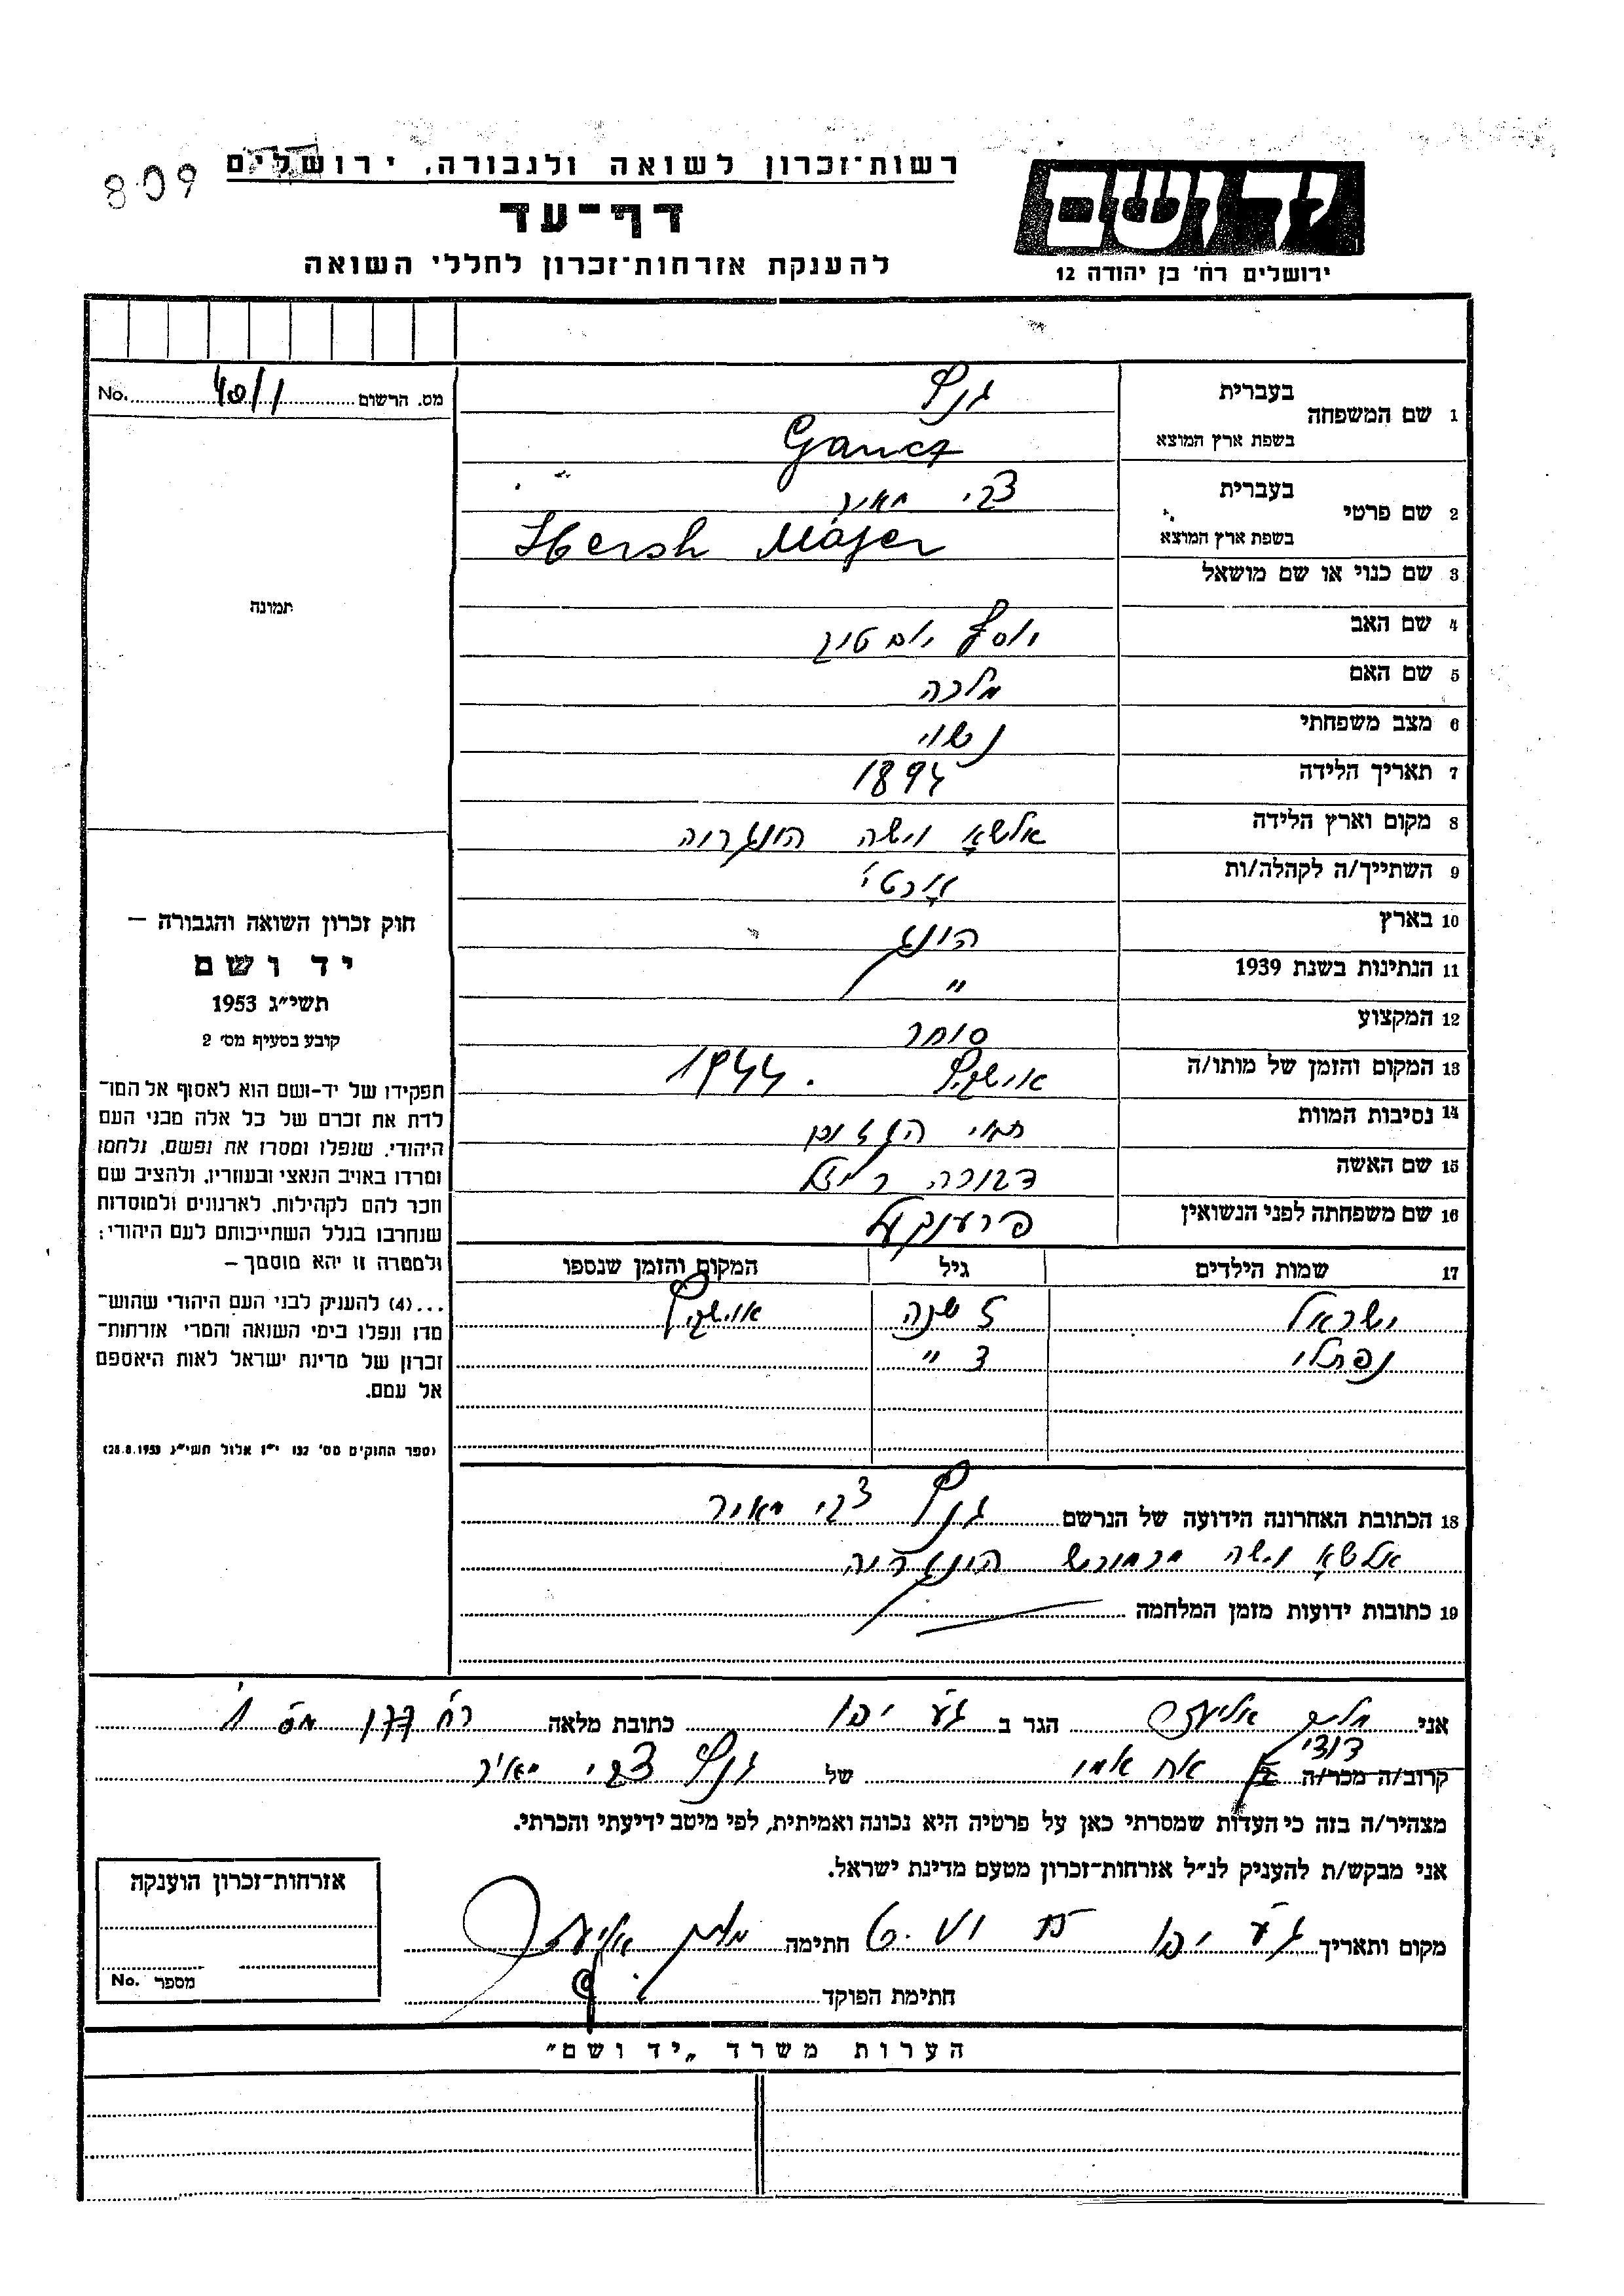 809
רשות־זכרון לשואה ולגבורה, ירושלים
דף־עד
להענקת אזרחות־זכרון לחללי השואה
יד ושם
ירושלים רח' בן יהודה 12
מס. הרשום 40/1 No.
תמונה
1 שם המשפחה
בעברית גנץ
בשפת ארץ המוצא Gancz
2 שם פרטי
בעברית צבי מאיר
בשפת ארץ המוצא Hersh Májer
3 שם כנוי או שם מושאל
4 שם האב יוסף יום טוב
5 שם האם מלכה
6 מצב משפחתי נשוי
7 תאריך הלידה 1894
8 מקום וארץ הלידה אלשאָ ווישה הונגריה
9 השתייך/ה לקהלה/ות
10 בארץ הונג
11 הנתינות בשנת 1939 "
12 המקצוע סוחר
13 המקום והזמן של מותו/ה אושוויץ 1944.
14 נסיבות המוות
15 שם האשה דבורה רייזל
16 שם משפחתה לפני הנשואין פרענקעל
17 שמות הילדים גיל המקום והזמן שנספו
ישראל 5 שנה אושוויץ
נפתלי 3 "
18 הכתובת האחרונה הידועה של הנרשם גנץ צבי מאיר
אלשאָ ווישה מרמורש הונגריה
19 כתובות ידועות מזמן המלחמה
חוק זכרון השואה והגבורה –
יד ושם
תשי"ג 1953
קובע בסעיף מס' 2
תפקידו של יד-ושם הוא לאסוף אל המו־
לדת את זכרם של כל אלה מבני העם
היהודי, שנפלו ומסרו את נפשם, נלחמו
ומרדו באויב הנאצי ובעוזריו, ולהציב שם
וזכר להם לקהילות, לארגונים ולמוסדות
שנחרבו בגלל השתייכותם לעם היהודי;
ולמטרה זו יהא מוסמך –
...(4) להעניק לבני העם היהודי שהוש־
מדו ונפלו בימי השואה והמרי אזרחות־
זכרון של מדינת ישראל לאות היאספם
אל עמם.
(ספר החוקים מס' 132 י"ז אלול תשי"ג 28.8.1953)
אני אליעזר הגר ב יפו כתובת מלאה רח'
דודי
קרוב/ה מכר/ה אח אמי של גנץ צבי מאיר
מצהיר/ה בזה כי העדות שמסרתי כאן על פרטיה היא נכונה ואמיתית, לפי מיטב ידיעתי והכרתי.
אני מבקש/ת להעניק לנ"ל אזרחות־זכרון מטעם מדינת ישראל.
מקום ותאריך יפו חתימה אליעזר
חתימת הפוקד
אזרחות־זכרון הוענקה
מספר No.
הערות משרד „יד ושם"